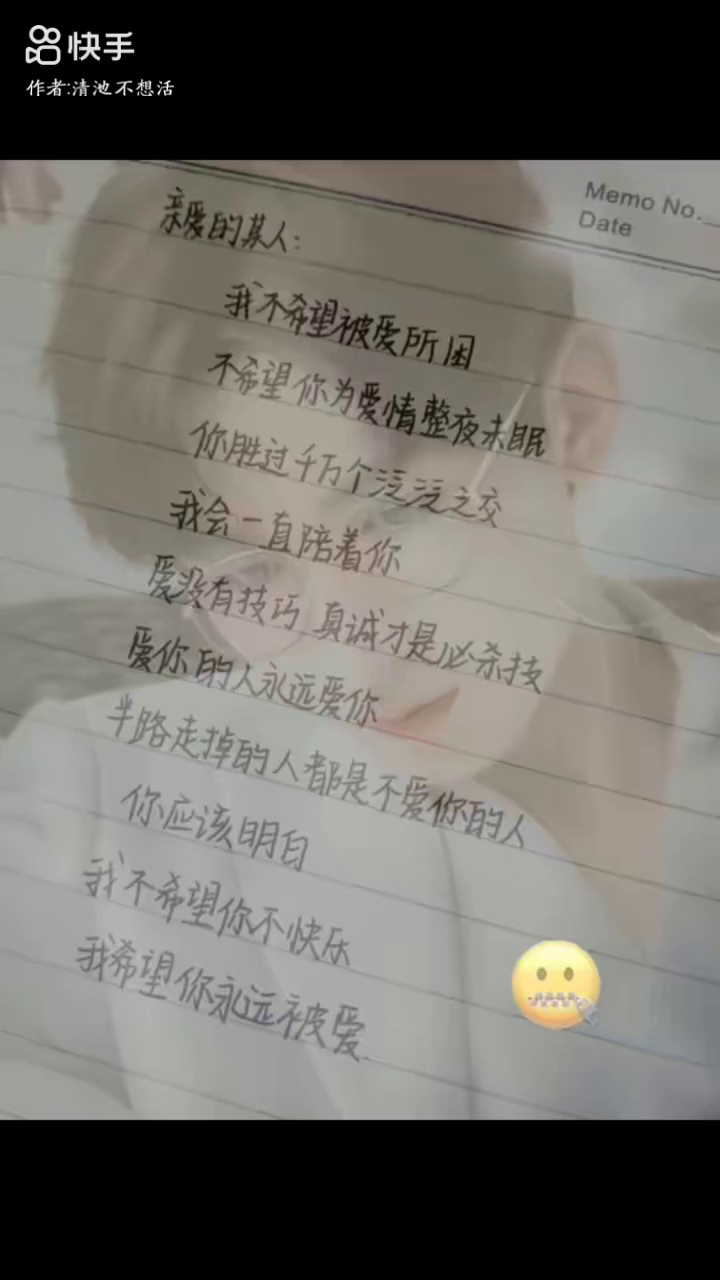 快手
作者:清池不想活
Memo No.
Date
亲爱的某人:
我不希望被爱所困
不希望你为爱情整夜未眠
你胜过千万个泛泛之交
我会一直陪着你
爱没有技巧 真诚才是必杀技
爱你的人永远爱你
半路走掉的人都是不爱你的人
你应该明白
我不希望你不快乐
我希望你永远被爱